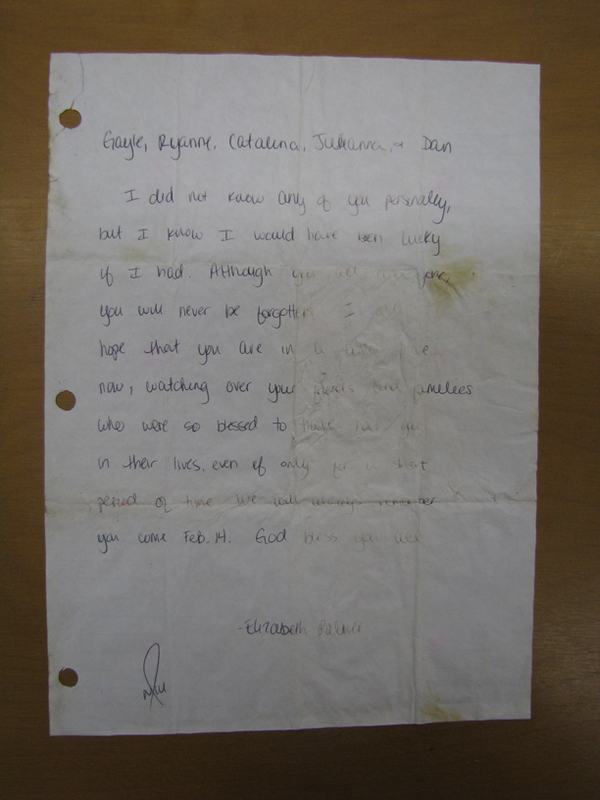 Gayle, Ryanne, Catalina, Julianna, + Dan
I did not know any of you personally,
but I know I would have been lucky
if I had. Although you are gone,
you will never be forgotten. I
hope that you are in a
now, watching over your friends and familees
who were so blessed to have had you
in their lives, even if only for a short
period of time. We will always remember
you come Feb. 14. God bless you all
-Elizabeth Palmer